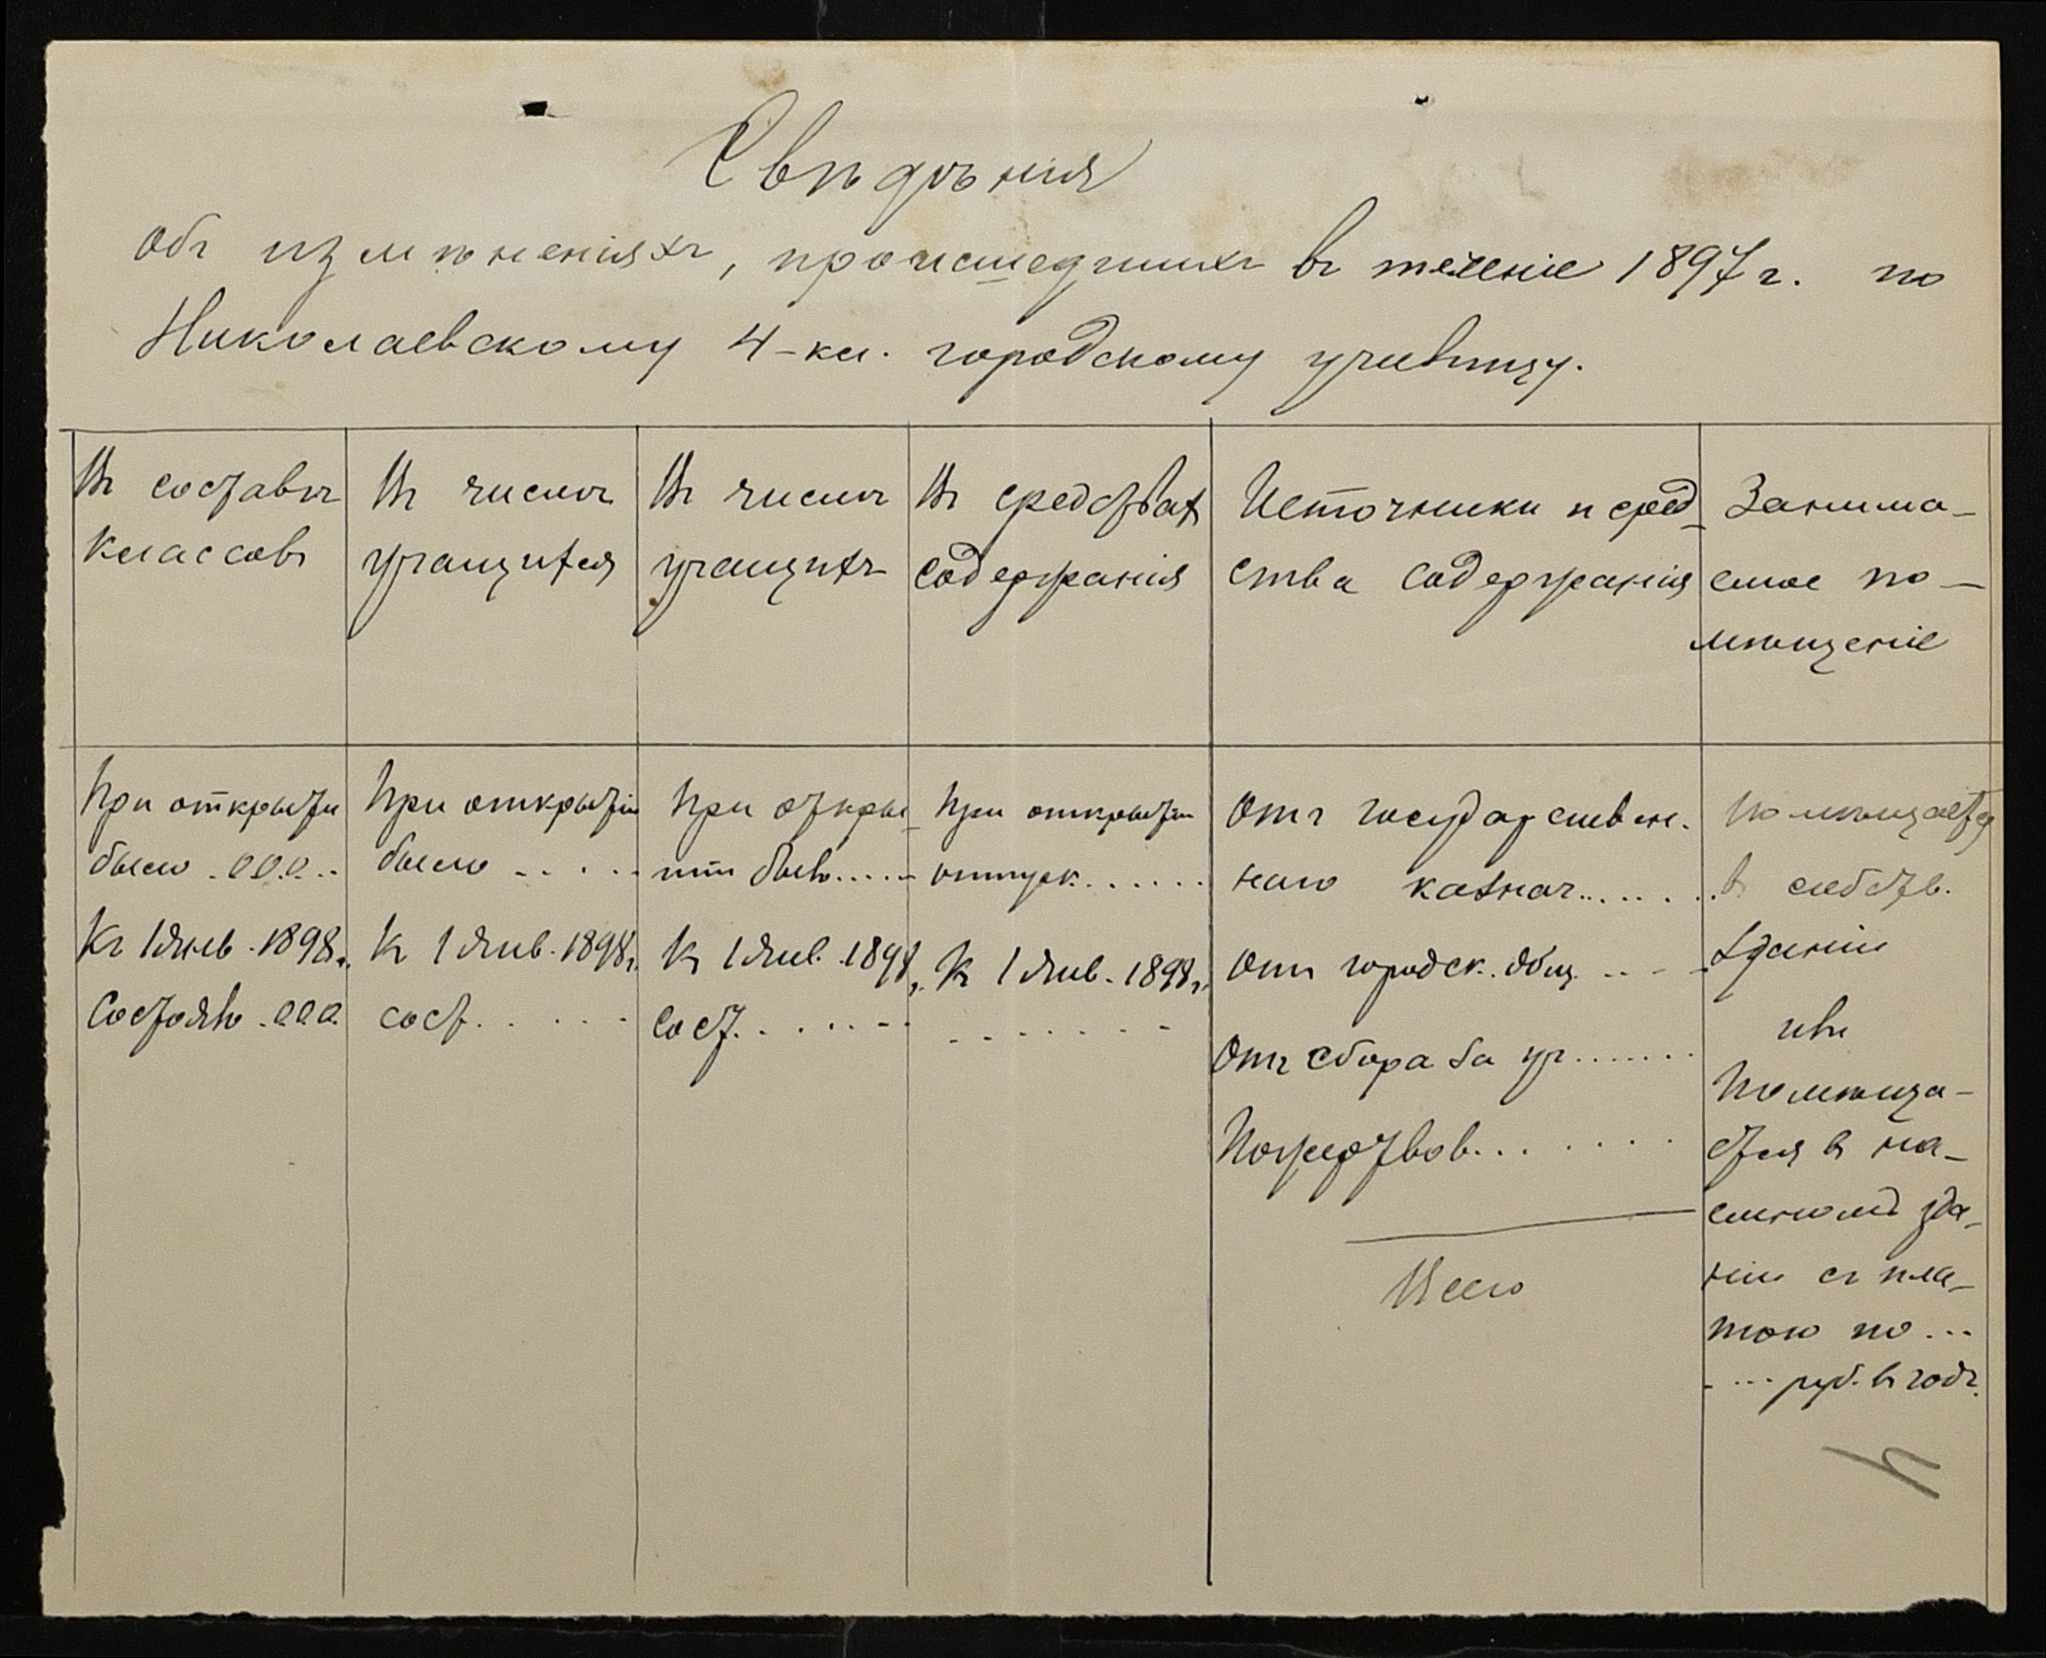 Свѣдѣнія
объ измѣненіяхъ, происшедшихъ въ теченіе 1897 г. по
Николаевскому 4-кл. городскому училищу.
Въ составѣ
классовъ
Въ числѣ
учащихся
Въ числѣ
учащихъ
Въ средствахъ
содержанія
Источники и сред-
ства содержанія
Занима-
емое по-
мѣщеніе
При открытіи
было . . . . .
Къ 1 Янв. 1898 г.
Состояло . . . .
При открытіи
было . . . . .
Къ 1 Янв. 1898 г.
сост. . . . . .
При откры-
тіи было . . . . .
Къ 1 Янв. 1898 г.
Сост. . . . . .
При открытіи
отпуск. . . . . .
Къ 1 Янв. 1898 г.
. . . . . . .
Отъ государствен-
наго казнач. . . . . .
Отъ городск. общ. . . . .
Отъ сбора за уч. . . . . . .
Пожертвов. . . . . . .
Всего
Помѣщается
въ собств.
зданіи
или
Помѣща-
ется въ на-
емномъ зда-
ніи съ пла-
тою по ...
.... руб. въ годъ.